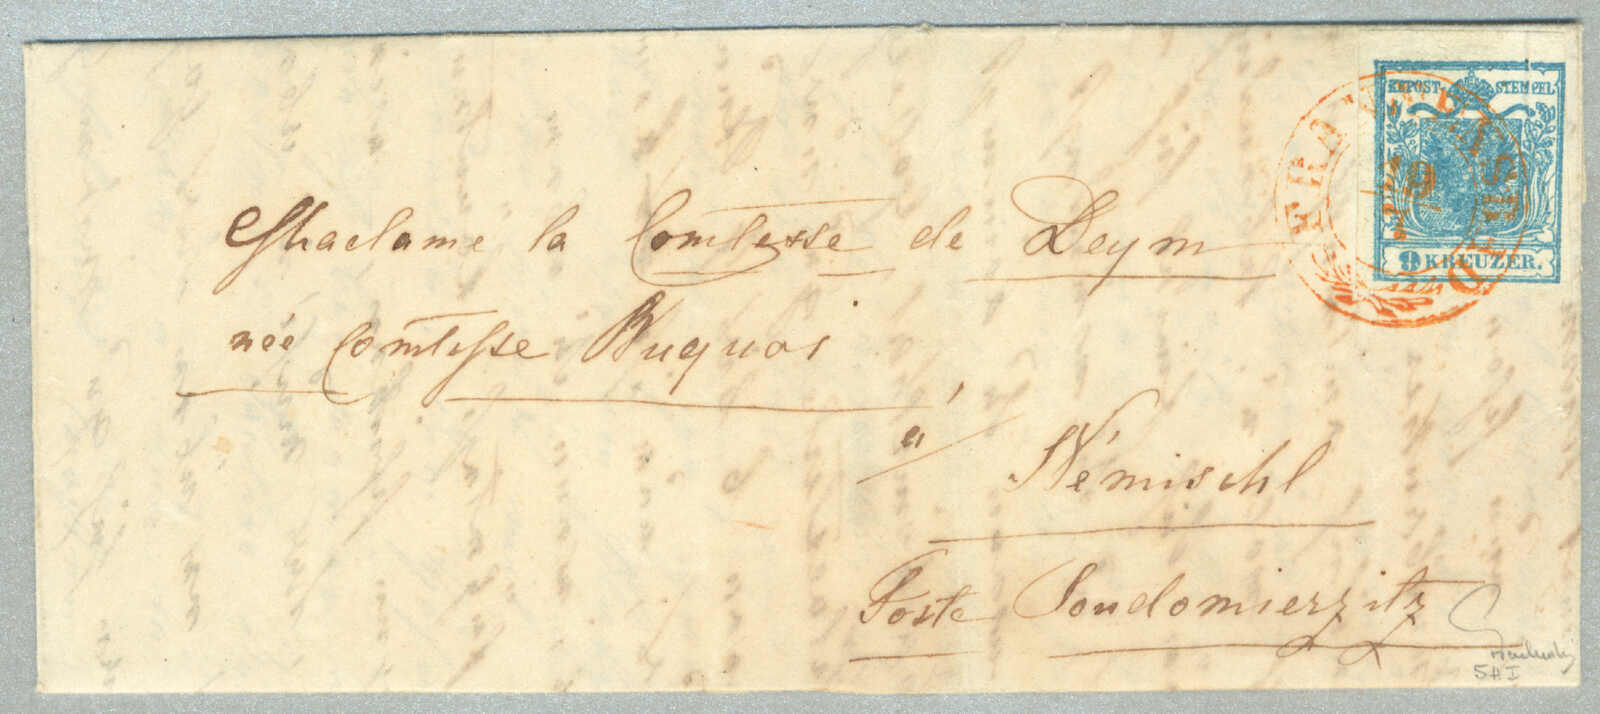 KKPOST STEMPEL
9 KREUZER.
Madame la Comtesse de Deym
née Comtesse Buquoi
à
Némischl
Poste Soudomierzitz
5HI